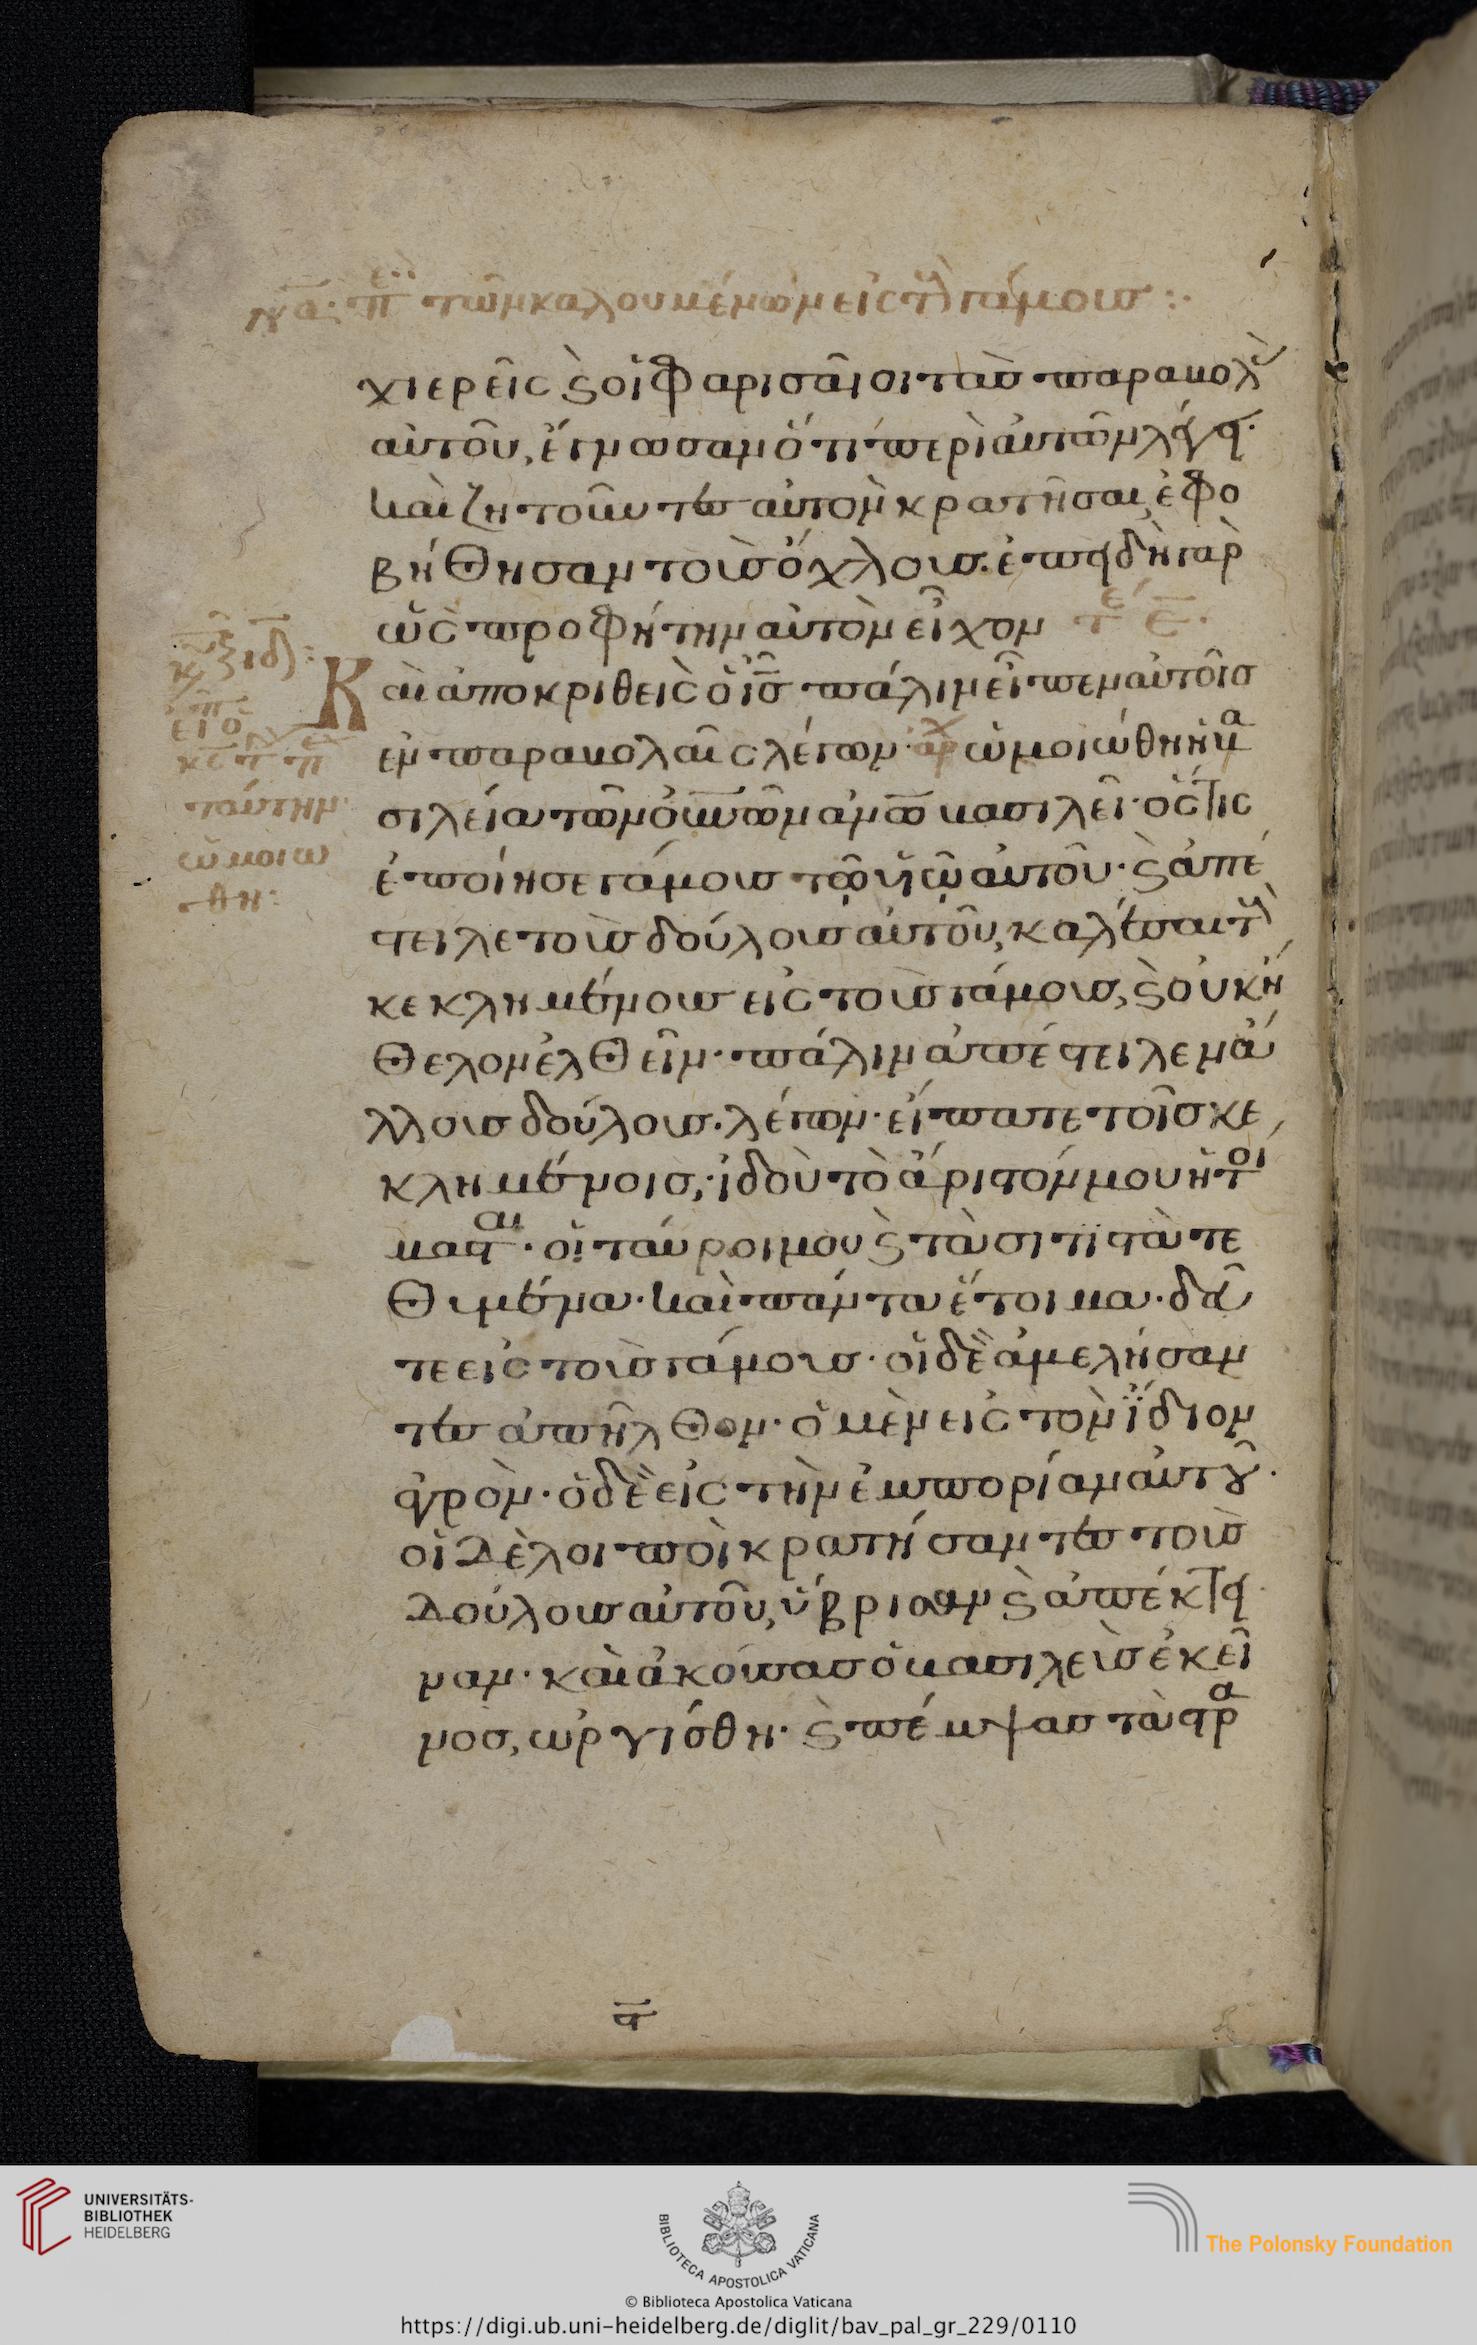 να· πε τῶν καλουμένων εἰς τοὺς γάμους :·
χιερεῖς ϗ οἱ φαρισαῖοι τὰς παραβολὰς
αὐτοῦ, ἔγνωσαν ὅτι περὶ αὐτῶν λέγει·
καὶ ζητοῦντες αὐτὸν κρατῆσαι, ἐφο
βήθησαν τοὺς ὄχλους. ἐπειδὴ γὰρ
ὡς προφήτην αὐτὸν εἶχον τε
Καὶ ἀποκριθεὶς ὁ ις πάλιν εἶπεν αὐτοῖς
ἐν παραβολαῖς λέγων· αρχ ὡμοιώθη ἡ βα
σιλεία τῶν οὐνῶν ανω βασιλεῖ· ὅστις
ἐποίησε γάμους τῷ υἱῷ αὐτοῦ· ϗ ἀπέ
στειλε τοὺς δούλους αὐτοῦ, καλέσαι τοὺς
κεκλημένους εἰς τοὺς γάμους, ϗ οὐκ ἤ
θελον ἐλθεῖν· πάλιν ἀπέστειλεν ἄ
λλους δούλους· λέγων· εἴπατε τοῖς κε
κλημένοις· ἰδοὺ τὸ ἄριστόν μου ἡτοί
μασται· οἱ ταῦροι μου ϗ τὰ σιτιστὰ τε
θυμένα· καὶ πάντα ἕτοιμα· δεῦ
τε εἰς τοὺς γάμους· οἱ δὲ ἀμελήσαν
τες ἀπῆλθον· ὁ μὲν εἰς τὸν ἴδιον
ἀγρὸν· ὁ δὲ εἰς τὴν ἐμπορίαν αὐτοῦ·
οἱ δὲ λοιποὶ κρατήσαντες τοὺς
δούλους αὐτοῦ, ὕβρισαν ϗ ἀπέκτει
ναν· καὶ ἀκούσας ὁ βασιλεὺς ἐκεῖ
νος, ὠργίσθη· ϗ πέμψας τὰ στρα
εἶπ ὁ
κς τ π
ταύτην·
ὡμοιώ
θη:
UNIVERSITÄTS-
BIBLIOTHEK
HEIDELBERG
BIBLIOTECA APOSTOLICA VATICANA
The Polonsky Foundation
© Biblioteca Apostolica Vaticana
https://digi.ub.uni-heidelberg.de/diglit/bav_pal_gr_229/0110